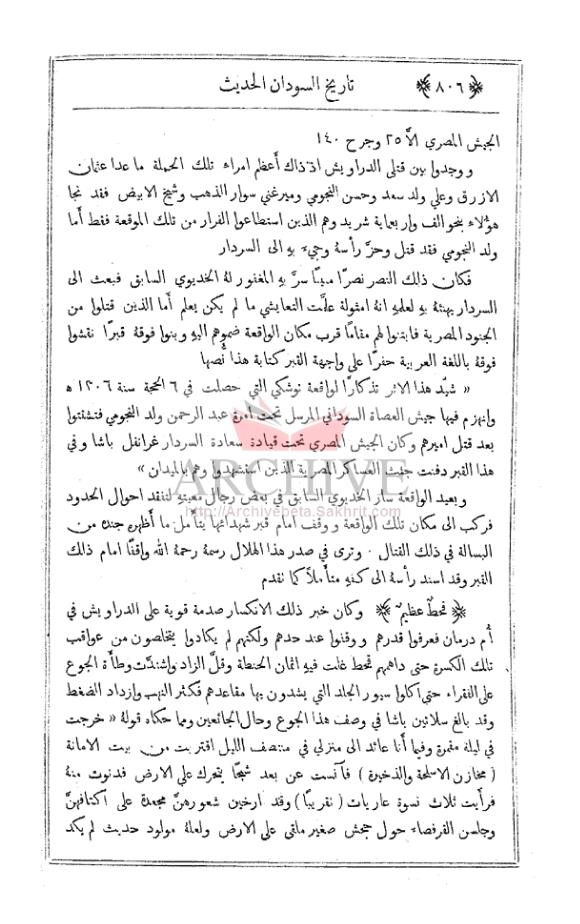 ﴿ ٨٠٦ ﴾ تاريخ السودان الحديث
الجيش المصري الأ ٢٥ وجرح ١٤٠
ووجدوا بين قتلى الدراويش اذ ذاك أعظم امراء تلك الحملة ما عدا عثمان
الازرق وعلي ولد سعد وحسن النجومي وميرغني سوار الذهب وشيخ الابيض فقد نجا
هؤلاء بنحو الف واربعماية شريد وهم الذين استطاعوا الفرار من تلك الموقعة فقط أما
ولد النجومي فقد قتل وحزَّ رأسهُ وجيء بهِ الى السردار
فكان ذلك النصر نصرًا مبينًا سرَّ بهِ المغفور لهُ الخديوي السابق فبعث الى
السردار يهنئهُ بهِ لعلمهِ انهُ امثولة علَّمت التعايشي ما لم يكن يعلم أما الذين قتلوا من
الجنود المصرية فابتنوا لهم مقامًا قرب مكان الواقعة ضموهم اليهِ وبنوا فوقهُ قبرًا نقشوا
فوقهُ باللغة العربية حفرًا على واجهة القبر كتابة هذا نُصها
« شيّد هذا الاثر تذكارًا لواقعة توشكي التي حصلت في ٦ الحجة سنة ١٣٠٦ ھ
وانهزم فيها جيش العصاة السوداني المرسل تحت امرة عبد الرحمن ولد النجومي فتشتتوا
بعد قتل اميرهم وكان الجيش المصري تحت قيادة سعادة السردار غرانفل باشا وفي
هذا القبر دفنت جثث العساكر المصرية الذين استشهدوا وهم بالميدان »
وبعيد الواقعة سار الخديوي السابق في بعض رجال معيتهِ لتفقد احوال الحدود
فركب الى مكان تلك الواقعة ووقف امام قبر شهدائها يتأمل ما أظهره جنده من
البسالة في ذلك القتال . وترى في صدر هذا الهلال رسمهُ رحمهُ الله واقفًا امام ذلك
القبر وقد اسند رأسهُ الى كفهِ متأملاً كما تقدم
﴿ قحطٌ عظيمٌ ﴾ وكان خبر ذلك الانكسار صدمة قوية على الدراويش في
أم درمان فعرفوا قدرهم ووقفوا عند حدهم ولكنهم لم يكادوا يتخلصون من عواقب
تلك الكسرة حتى داهمهم قحط غلت فيهِ اثمان الحنطة وقلَّ الزاد واشتدَّت وطأة الجوع
على الفقراء حتى اكلوا سيور الجلد التي يشدون بها مقاعدهم فكثر النهب وازداد الضغط
وقد بالغ سلاتين باشا في وصف هذا الجوع وحال الجائعين ومما حكاه قولهُ « خرجت
في ليلة مقمرة وفيما أنا عائد الى منزلي في منتصف الليل اقتربت من بيت الامانة
( مخازن الاسلحة والذخيرة ) فآنست عن بعد شبحًا يتحرك على الارض فدنوت منهُ
فرأيت ثلاث نسوة عاريات ( تقريبًا ) وقد ارخين شعورهنَّ مجعدة على اكتافهنَّ
وجلسن القرفصاء حول جحش صغير ملقى على الارض ولعلهُ مولود حديث لم يكد
ARCHIVE
http://Archivebeta.Sakhrit.com